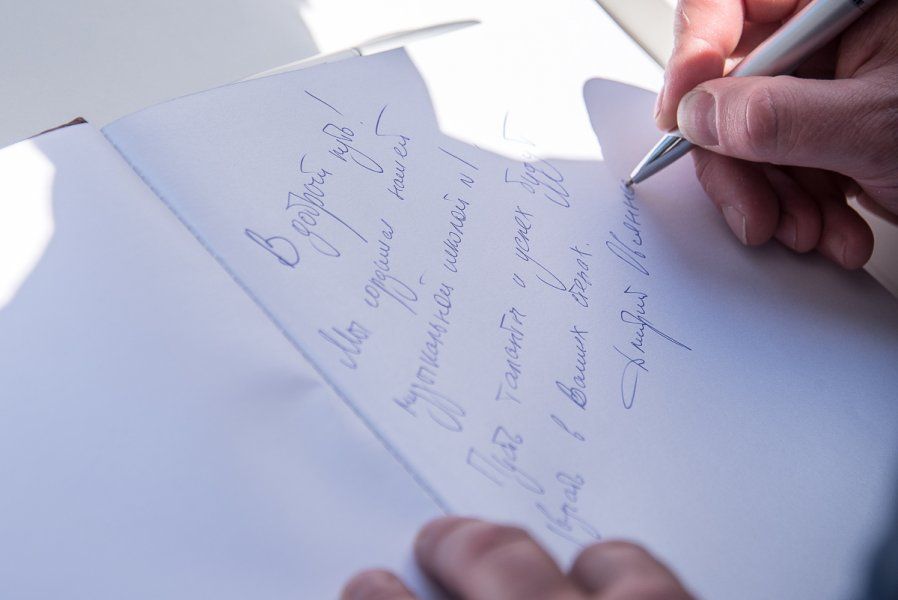 В добрый путь!
Мы гордимся нашей
музыкальной школой N1
Пусть таланты и успех будут
всегда в Ваших стенах.
Дмитрий